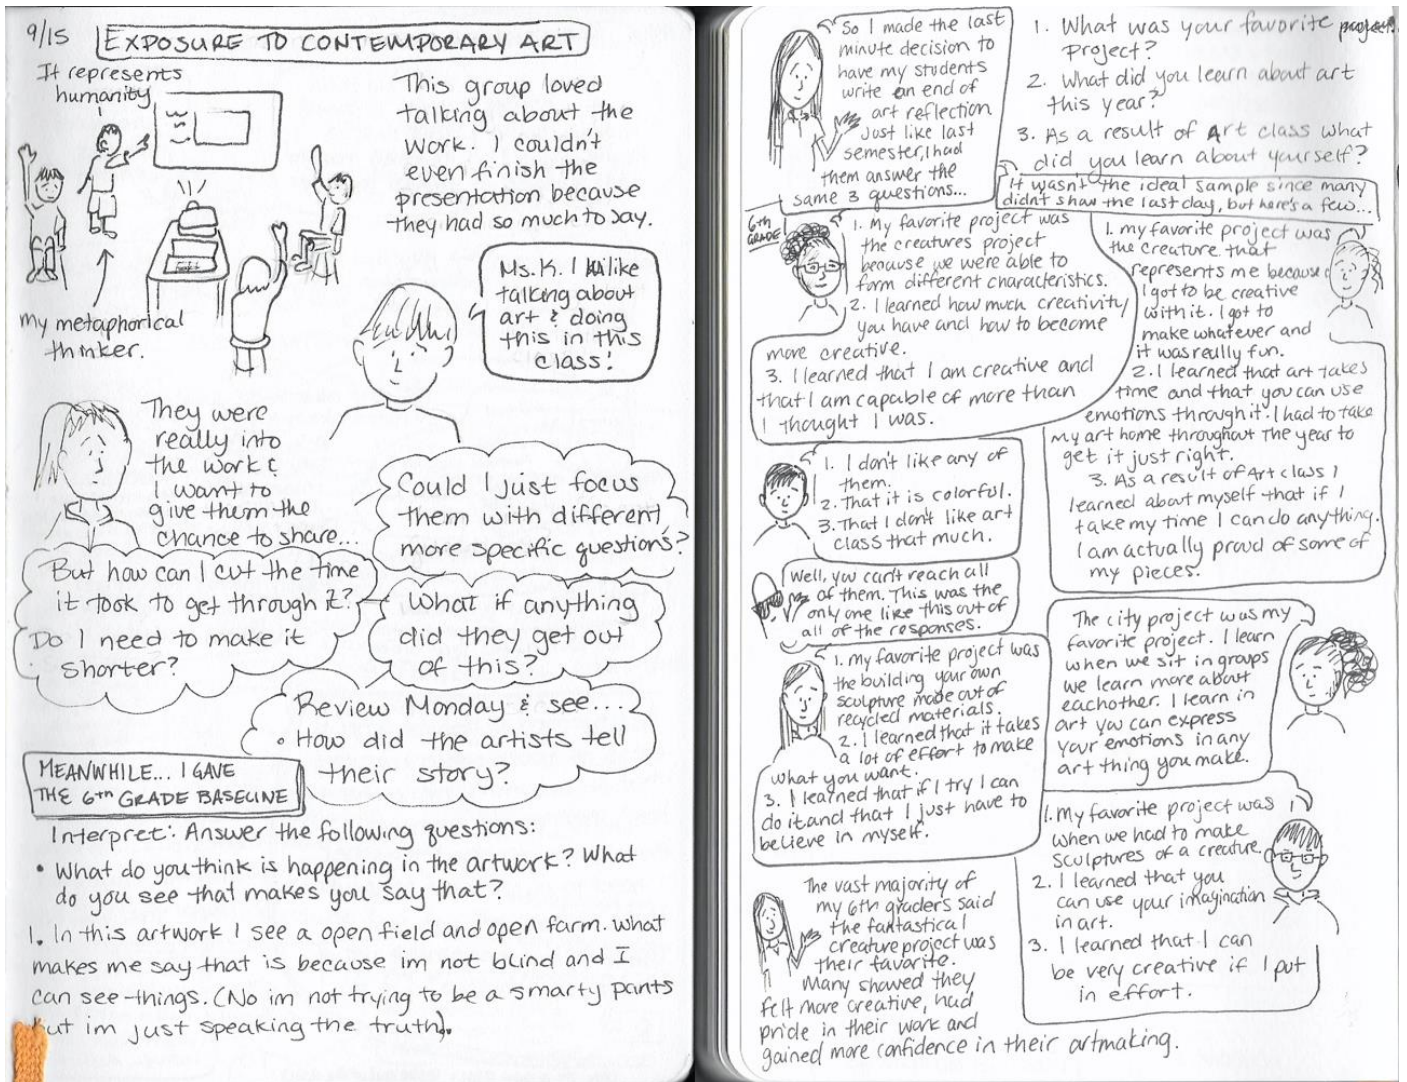 9/15 EXPOSURE TO CONTEMPORARY ART
It represents
humanity
my metaphorical
thinker.
This group loved
talking about the
work. I couldn't
even finish the
presentation because
they had so much to say.
Ms. K. I like
talking about
art & doing
this in this
class!
They were
really into
the work &
I want to
give them the
chance to share...
But how can I cut the time
it took to get through it?
Do I need to make it
shorter?
Could I just focus
them with different
more specific questions?
What if anything
did they get out
of this?
Review Monday & see...
• How did the artists tell
their story?
MEANWHILE... I GAVE
THE 6TH GRADE BASELINE
Interpret: Answer the following questions:
• What do you think is happening in the artwork? What
do you see that makes you say that?
1. In this artwork I see a open field and open farm. what
makes me say that is because im not blind and I
can see things. (No im not trying to be a smarty pants
but im just speaking the truth).
So I made the last
minute decision to
have my students
write an end of
art reflection
Just like last
semester, I had
them answer the
same 3 questions...
1. What was your favorite
project?
2. What did you learn about art
this year?
3. As a result of Art class what
did you learn about yourself?
It wasn't the ideal sample since many
didn't show the last day, but here's a few...
6th
GRADE
1. My favorite project was
the creatures project
because we were able to
form different characteristics.
2. I learned how much creativity
you have and how to become
more creative.
3. I learned that I am creative and
that I am capable of more than
I thought I was.
1. my favorite project was
the creature that
represents me because
I got to be creative
with it. I got to
make whatever and
it was really fun.
2. I learned that art takes
time and that you can use
emotions through it. I had to take
my art home throughout the year to
get it just right.
3. As a result of Art class I
learned about myself that if I
take my time I can do anything.
I am actually proud of some of
my pieces.
1. I don't like any of
them.
2. That it is colorful.
3. That I don't like art
class that much.
Well, you can't reach all
of them. This was the
only one like this out of
all of the responses.
1. my favorite project was
the building your own
sculpture made out of
recycled materials.
2. I learned that it takes
a lot of effort to make
what you want.
3. I learned that if I try I can
do it and that I just have to
believe in myself.
The city project was my
favorite project. I learn
when we sit in groups
we learn more about
eachother. I learn in
art you can express
your emotions in any
art thing you make.
1. My favorite project was
when we had to make
sculptures of a creature.
2. I learned that you
can use your imagination
in art.
3. I learned that I can
be very creative if I put
in effort.
The vast majority of
my 6th graders said
the fantastical
creature project was
their favorite.
Many showed they
felt more creative, had
pride in their work and
gained more confidence in their artmaking.